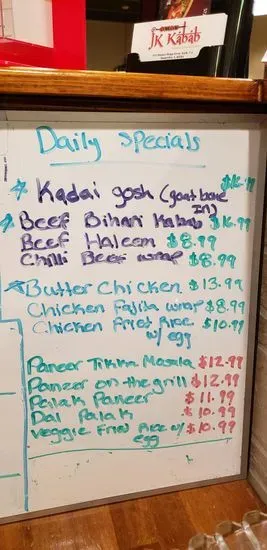 JK Kabab
Daily Specials
Kadai gosh (goat bone in) $16.99
Beef Bihari Kabab $16.99
Beef Haleem $8.99
Chilli Beef wrap $8.99
Butter Chicken $13.99
Chicken Fajita wrap $8.99
Chicken Fried Rice $10.99
w/ egg
Paneer Tikka Masala $12.99
Paneer on the grill $12.99
Palak Paneer $11.99
Dal Palak $10.99
Veggie Fried Rice w/ $10.99
egg